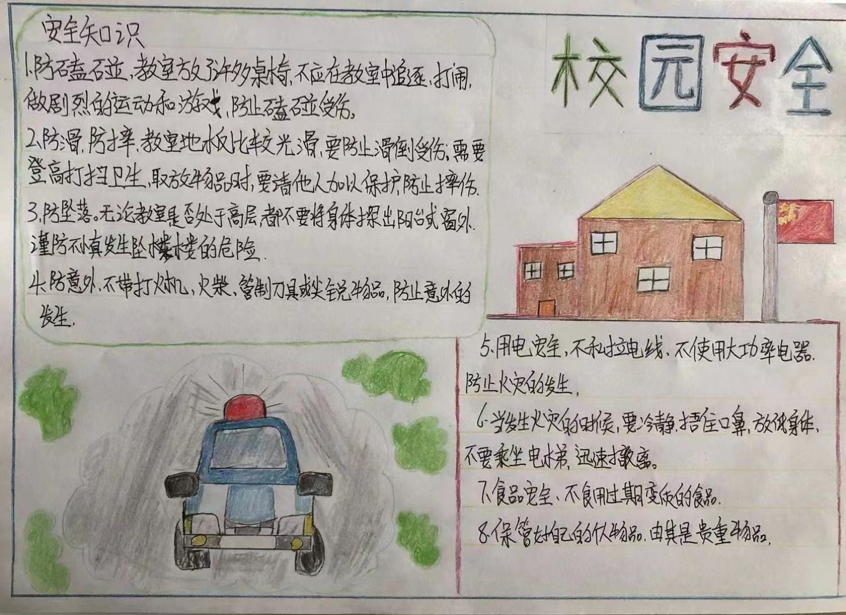 校园安全
安全知识
1.防磕碰,教室放了许多桌椅,不应在教室中追逐、打闹,
做剧烈的运动和游戏,防止磕碰受伤。
2.防滑,防摔,教室地板比较光滑,要防止滑倒受伤,需要
登高打扫卫生,取放物品时,要请他人加以保护,防止摔伤.
3.防坠落。无论教室是否处于高层,都不要将身体探出阳台或窗外.
谨防不慎发生坠楼的危险.
4.防意外,不带打火机、火柴、管制刀具或尖锐物品,防止意外的
发生.
5.用电安全,不私拉电线,不使用大功率电器.
防止火灾的发生.
6.当发生火灾的时候,要冷静,捂住口鼻,放低身体,
不要乘坐电梯,迅速撤离。
7.食品安全、不食用过期变质的食品.
8.保管好自己的人物品.由其是贵重物品.